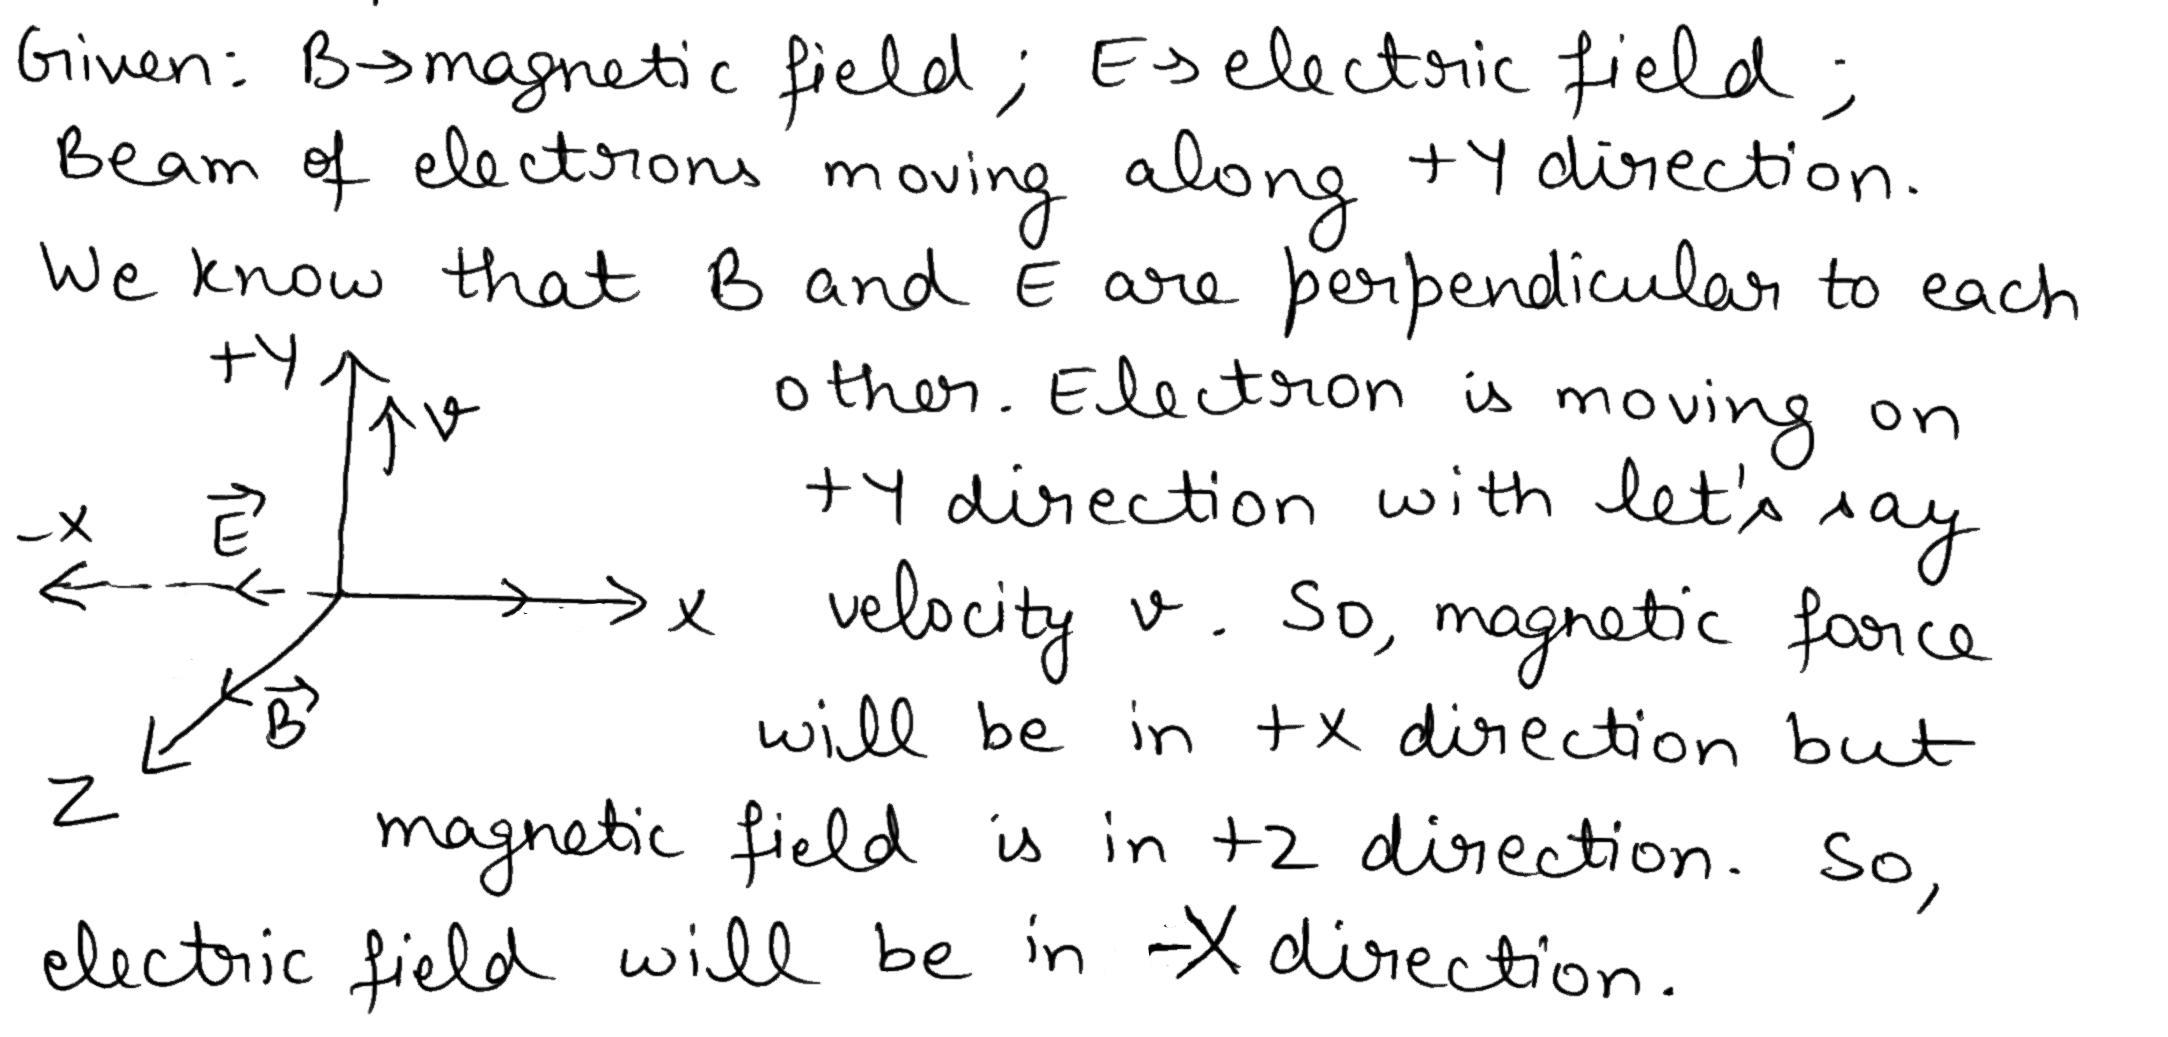 Given: B→magnetic field; E→electric field;
Beam of electrons moving along +Y direction.
We know that B and E are perpendicular to each
+Y
other. Electron is moving on
v
+Y direction with let's say
-X
E
velocity v. So, magnetic force
X
B
will be in +X direction but
Z
magnetic field is in +Z direction. So,
electric field will be in -X direction.